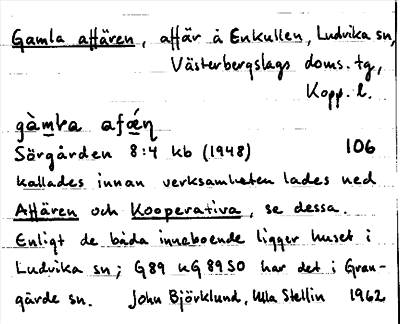 Gamla affären, affär å Enkullen, Ludvika sn,
Västerbergslags doms. tg,
Kopp. l.
gàmla afǽŋ
Sörgården 8:4 kb (1948) 106
kallades innan verksamheten lades ned
Affären och Kooperativa, se dessa.
Enligt de båda inneboende ligger huset i
Ludvika sn; G89 u G 89 SO har det i Gran-
gärde sn. John Björklund, Ulla Stellin 1962